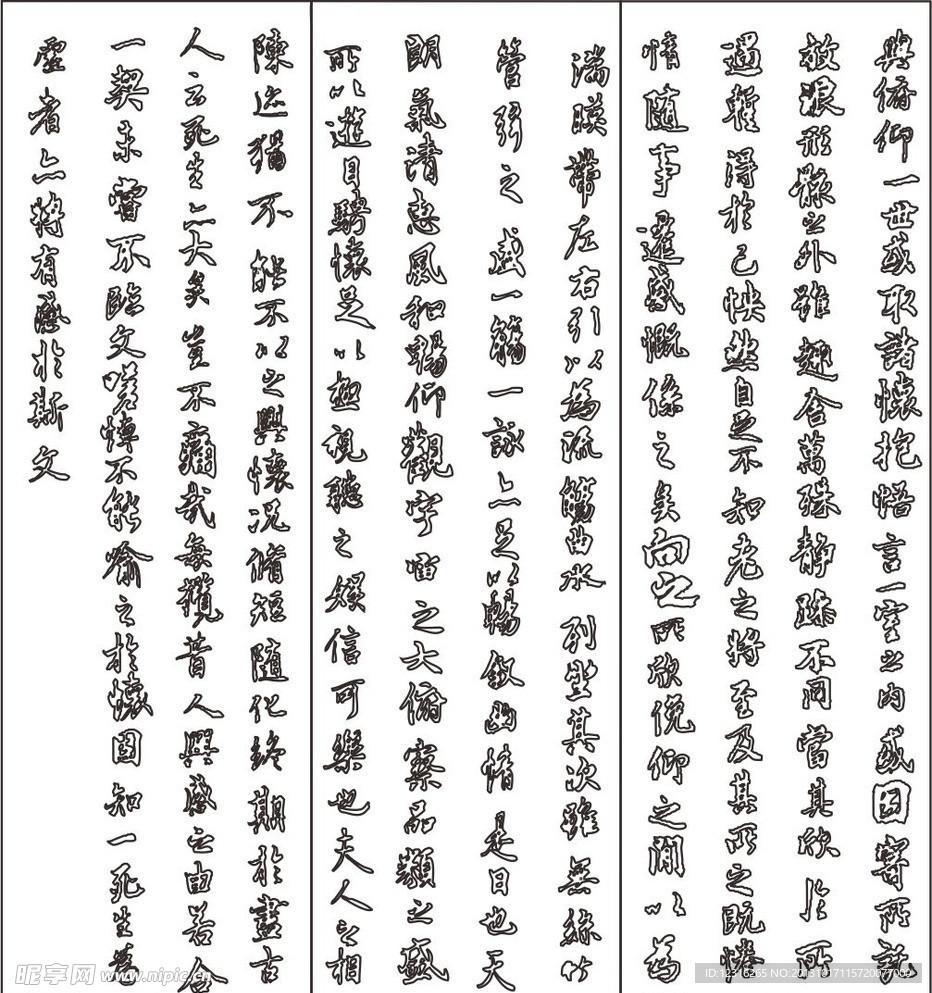 與俯仰一世或取諸懷抱悟言一室之內或因寄所託
放浪形骸之外雖趣舍萬殊靜躁不同當其欣於所
遇暫得於己怏然自足不知老之將至及其所之既惓
情隨事遷感慨係之矣向之所欣俛仰之閒以為
湍暎帶左右引以為流觴曲水列坐其次雖無絲竹
管弦之盛一觴一詠亦足以暢敘幽情是日也天
朗氣清惠風和暢仰觀宇宙之大俯察品類之盛
所以遊目騁懷足以極視聽之娛信可樂也夫人之相
陳迹猶不能不以之興懷況脩短隨化終期於盡古
人云死生亦大矣豈不痛哉每攬昔人興感之由若合
一契未嘗不臨文嗟悼不能喻之於懷固知一死生為
虛者亦將有感於斯文
昵享网 www.nipic.cn